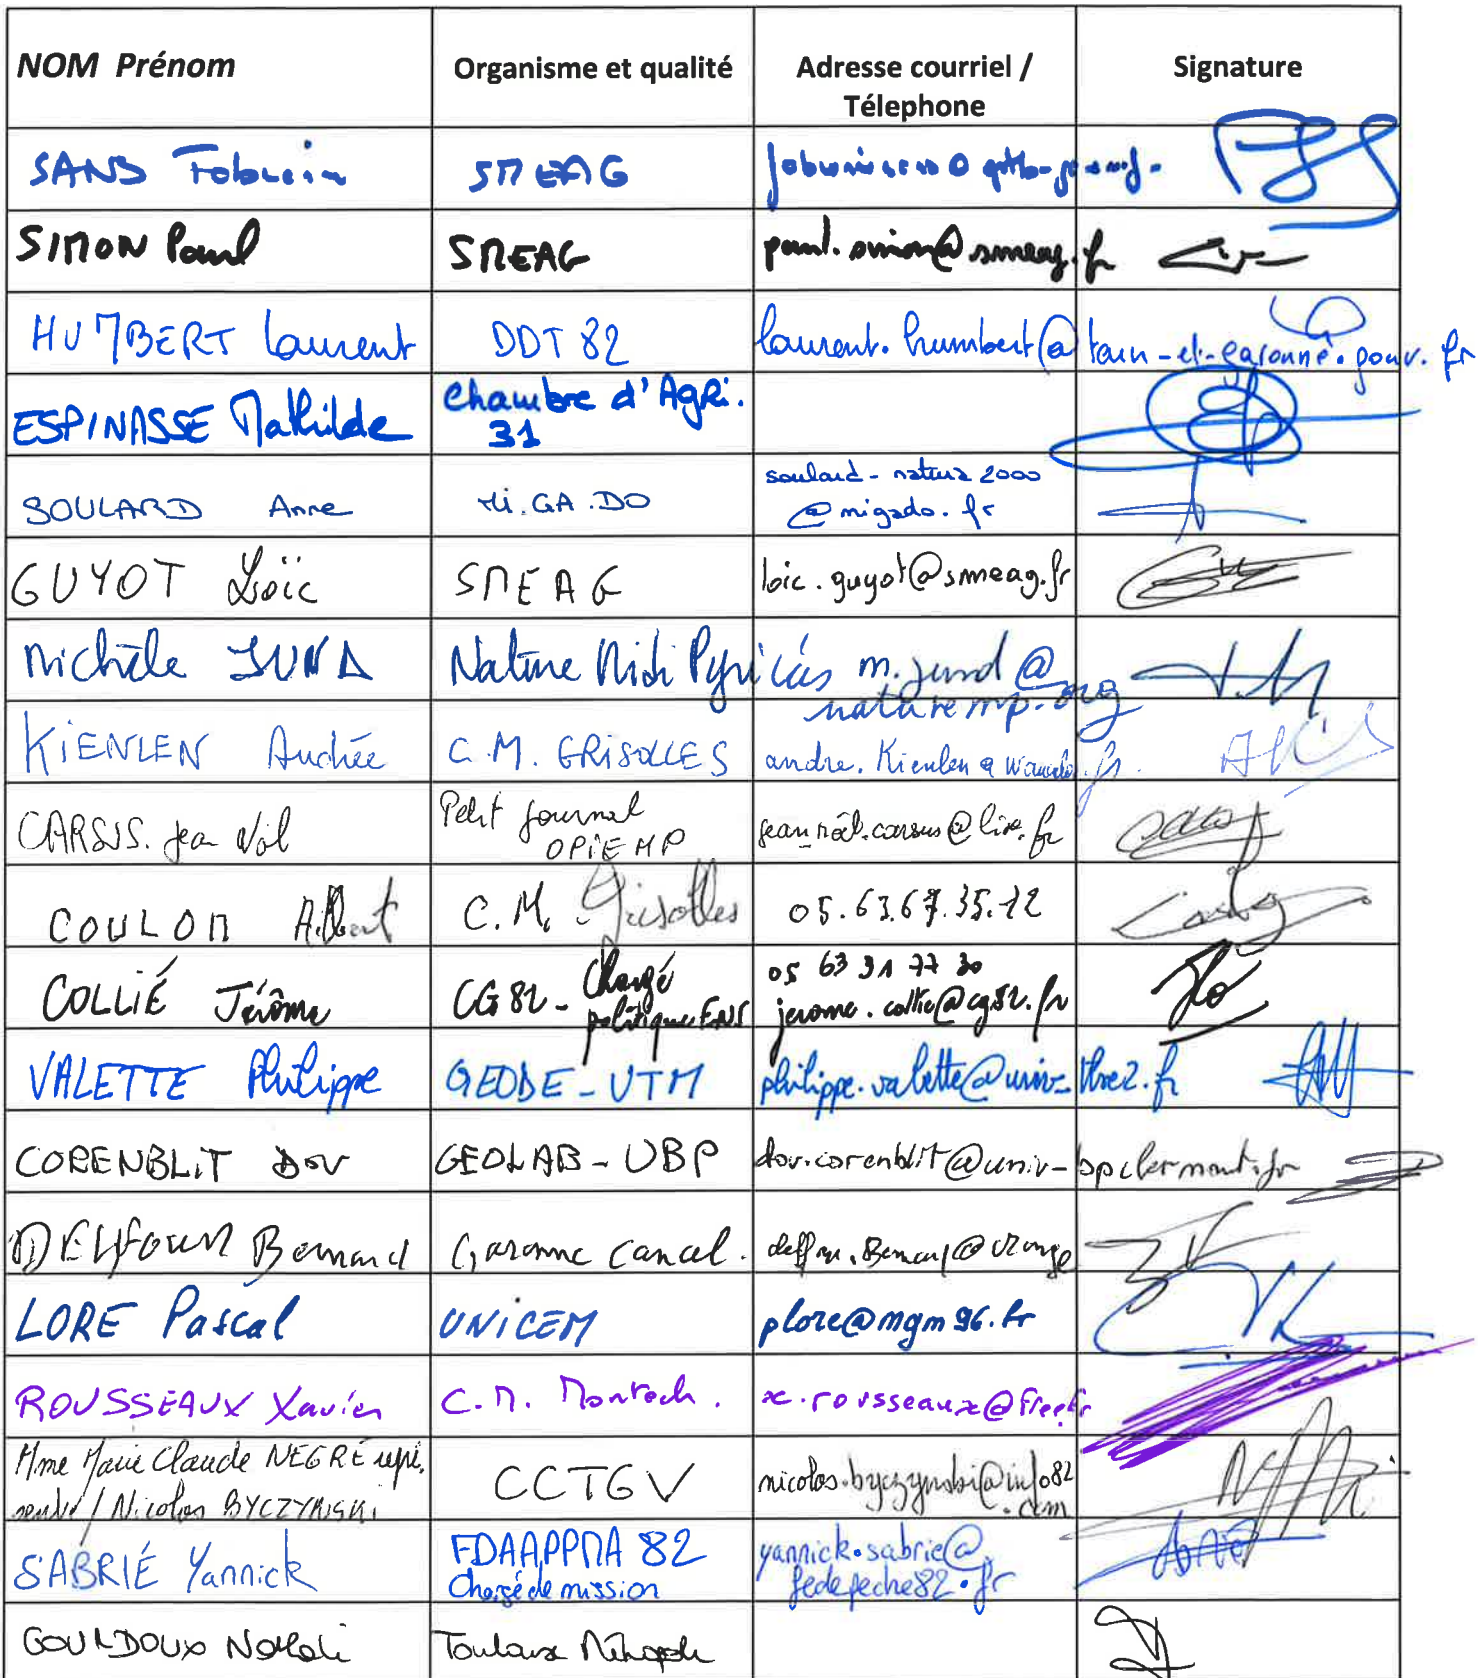 NOM Prénom Organisme et qualité Adresse courriel / Signature
Télephone
SANS SMEAG
SIMON Paul SMEAG paul.simon@smeag.fr
HUMBERT Laurent DDT 82 laurent.humbert@tarn-et-garonne.gouv.fr
ESPINASSE Mathilde Chambre d'Agri.
31
SOULARD Anne Mi.GA.DO soulard-natura2000
@migado.fr
GUYOT Loïc SMEAG loic.guyot@smeag.fr
Michèle JUND Nature Midi Pyrénées m.jund@
naturemp.org
KIENLEN Andrée C.M. GRISOLLES andre.Kienlen@wanadoo.fr
CARSUS. Jean Noël Petit journal
OPIE MP
COULON Albert C.M. Grisolles 05.63.67.35.12
COLLIÉ Jérôme CG82 - Chargé 05 63 91 77 30
politique ENS jerome.collie@cg82.fr
VALETTE Philippe GEODE-UTM philippe.valette@univ-tlse2.fr
CORENBLIT Dov GEOLAB-UBP dov.corenblit@univ-bpclermont.fr
Bernard Garonne Canal.
LORE Pascal UNICEM plore@mgm96.fr
ROUSSEAUX Xavier C.M. Montech. x.rousseaux@free.fr
Mme Marie Claude NEGRE repré.
senté / Nicolas BYCZYNSKI CCTGV nicolas.byczynski@info82
.com
SABRIÉ Yannick FDAAPPMA 82 yannick.sabrie@
Chargé de mission fedepeche82.fr
Toulouse Métropole